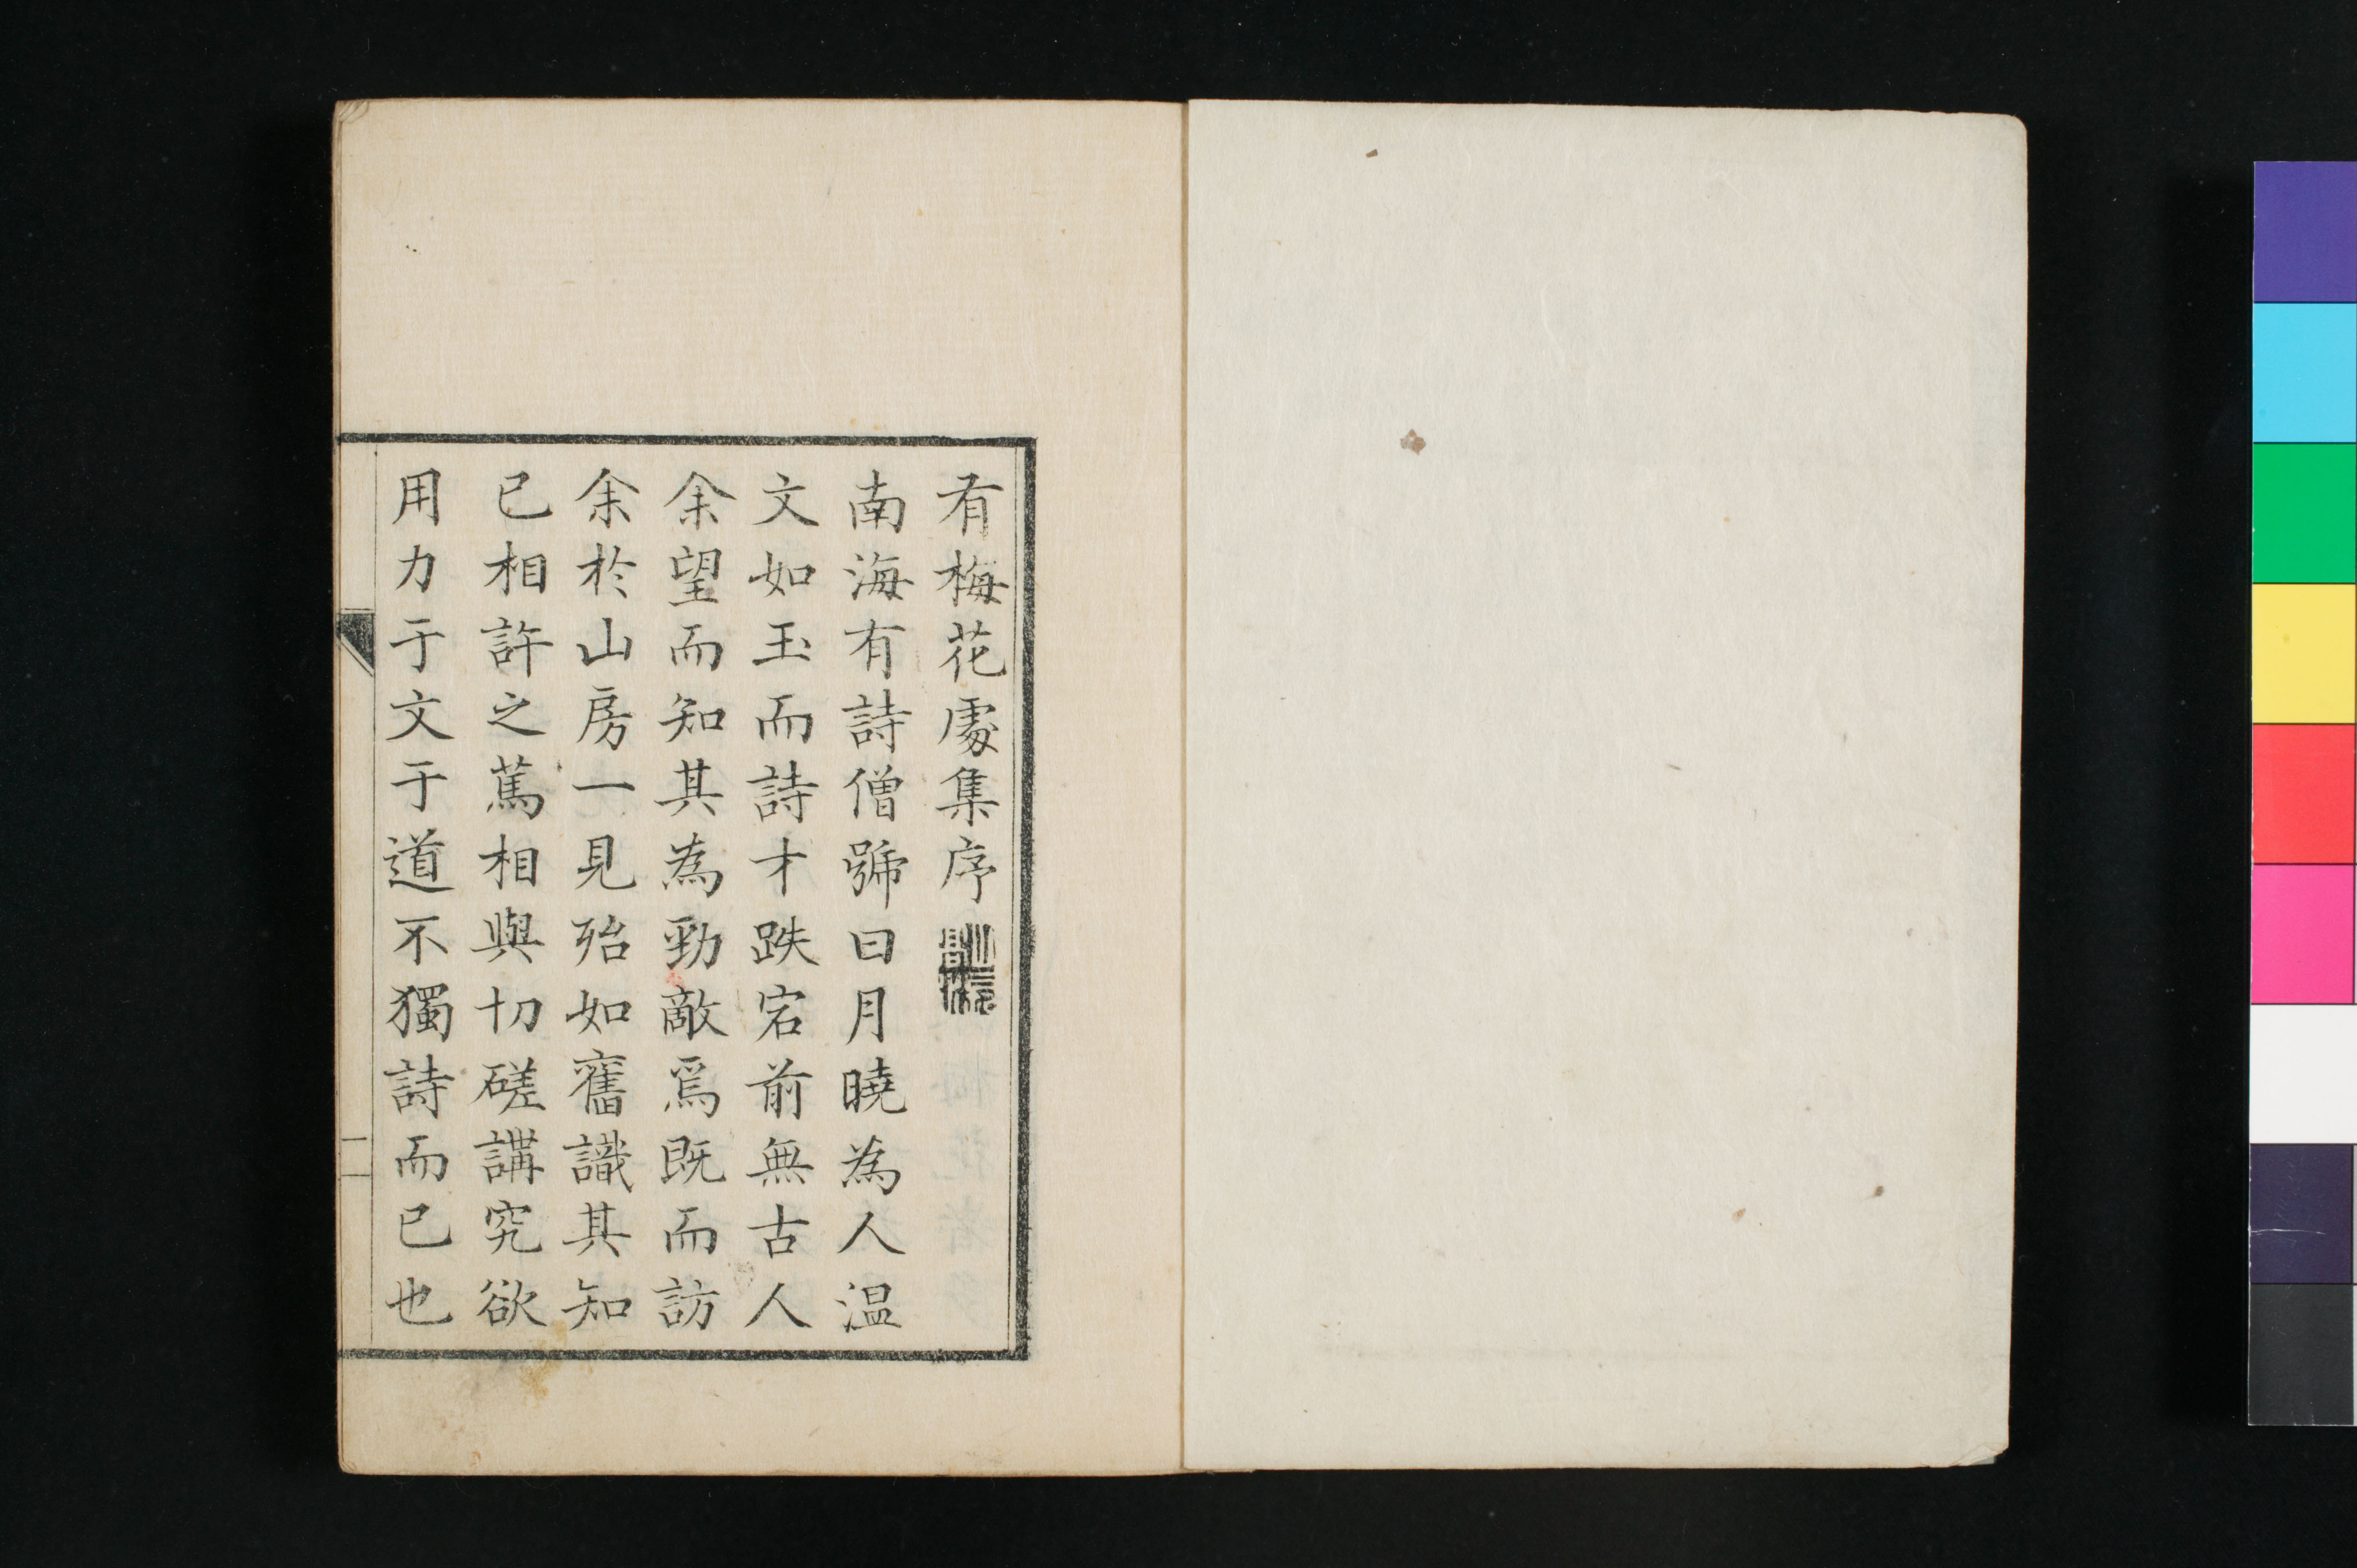 有梅花處集序
南海有詩僧號曰月曉為人温
文如玉而詩才跌宕前無古人
余望而知其為勁敵焉既而訪
余於山房一見殆如舊識其知
已相許之篤相與切磋講究欲
用力于文于道不獨詩而已也
一